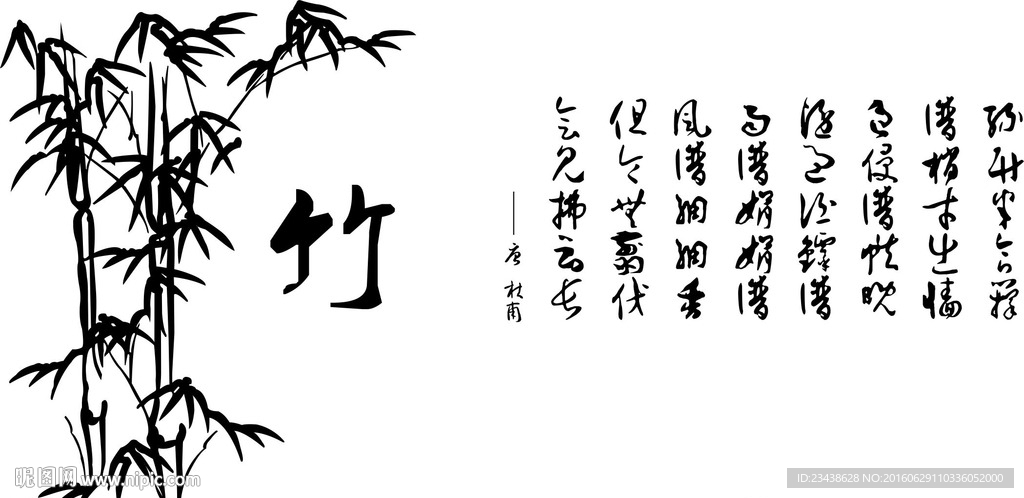 竹
绿竹半含箨
梢才出墙
色侵帙晚
过
雨娟娟
风细细香
但令無翦伐
会见拂云长
——唐 杜甫
昵图网 www.nipic.com
ID:23438628 NO:20160629110336052000